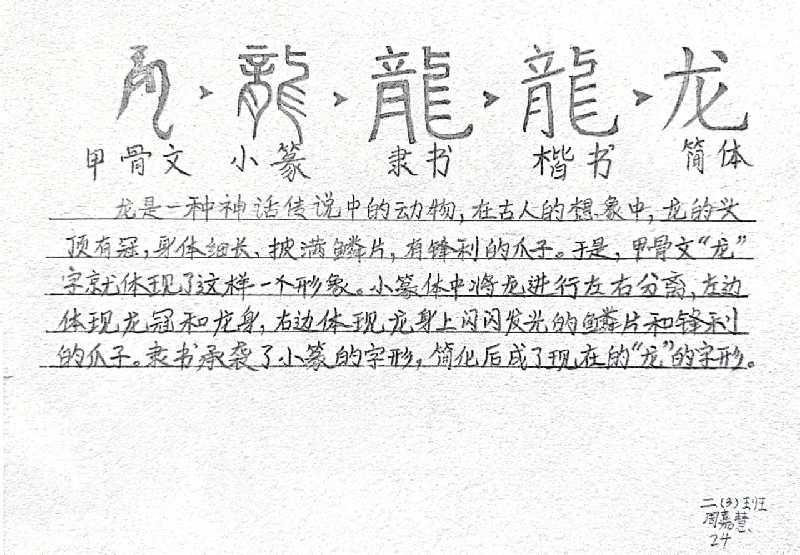 龍 > 龍 > 龍 > 龙
甲骨文 小篆 隶书 楷书 简体
龙是一种神话传说中的动物,在古人的想象中,龙的头
顶有冠,身体细长、披满鳞片,有锋利的爪子。于是,甲骨文“龙”
字就体现了这样一个形象。小篆体中将龙进行左右分离,左边
体现龙冠和龙身,右边体现龙身上闪闪发光的鳞片和锋利
的爪子。隶书承袭了小篆的字形,简化后成了现在的“龙”的字形。
二(3)班
周嘉慧
24